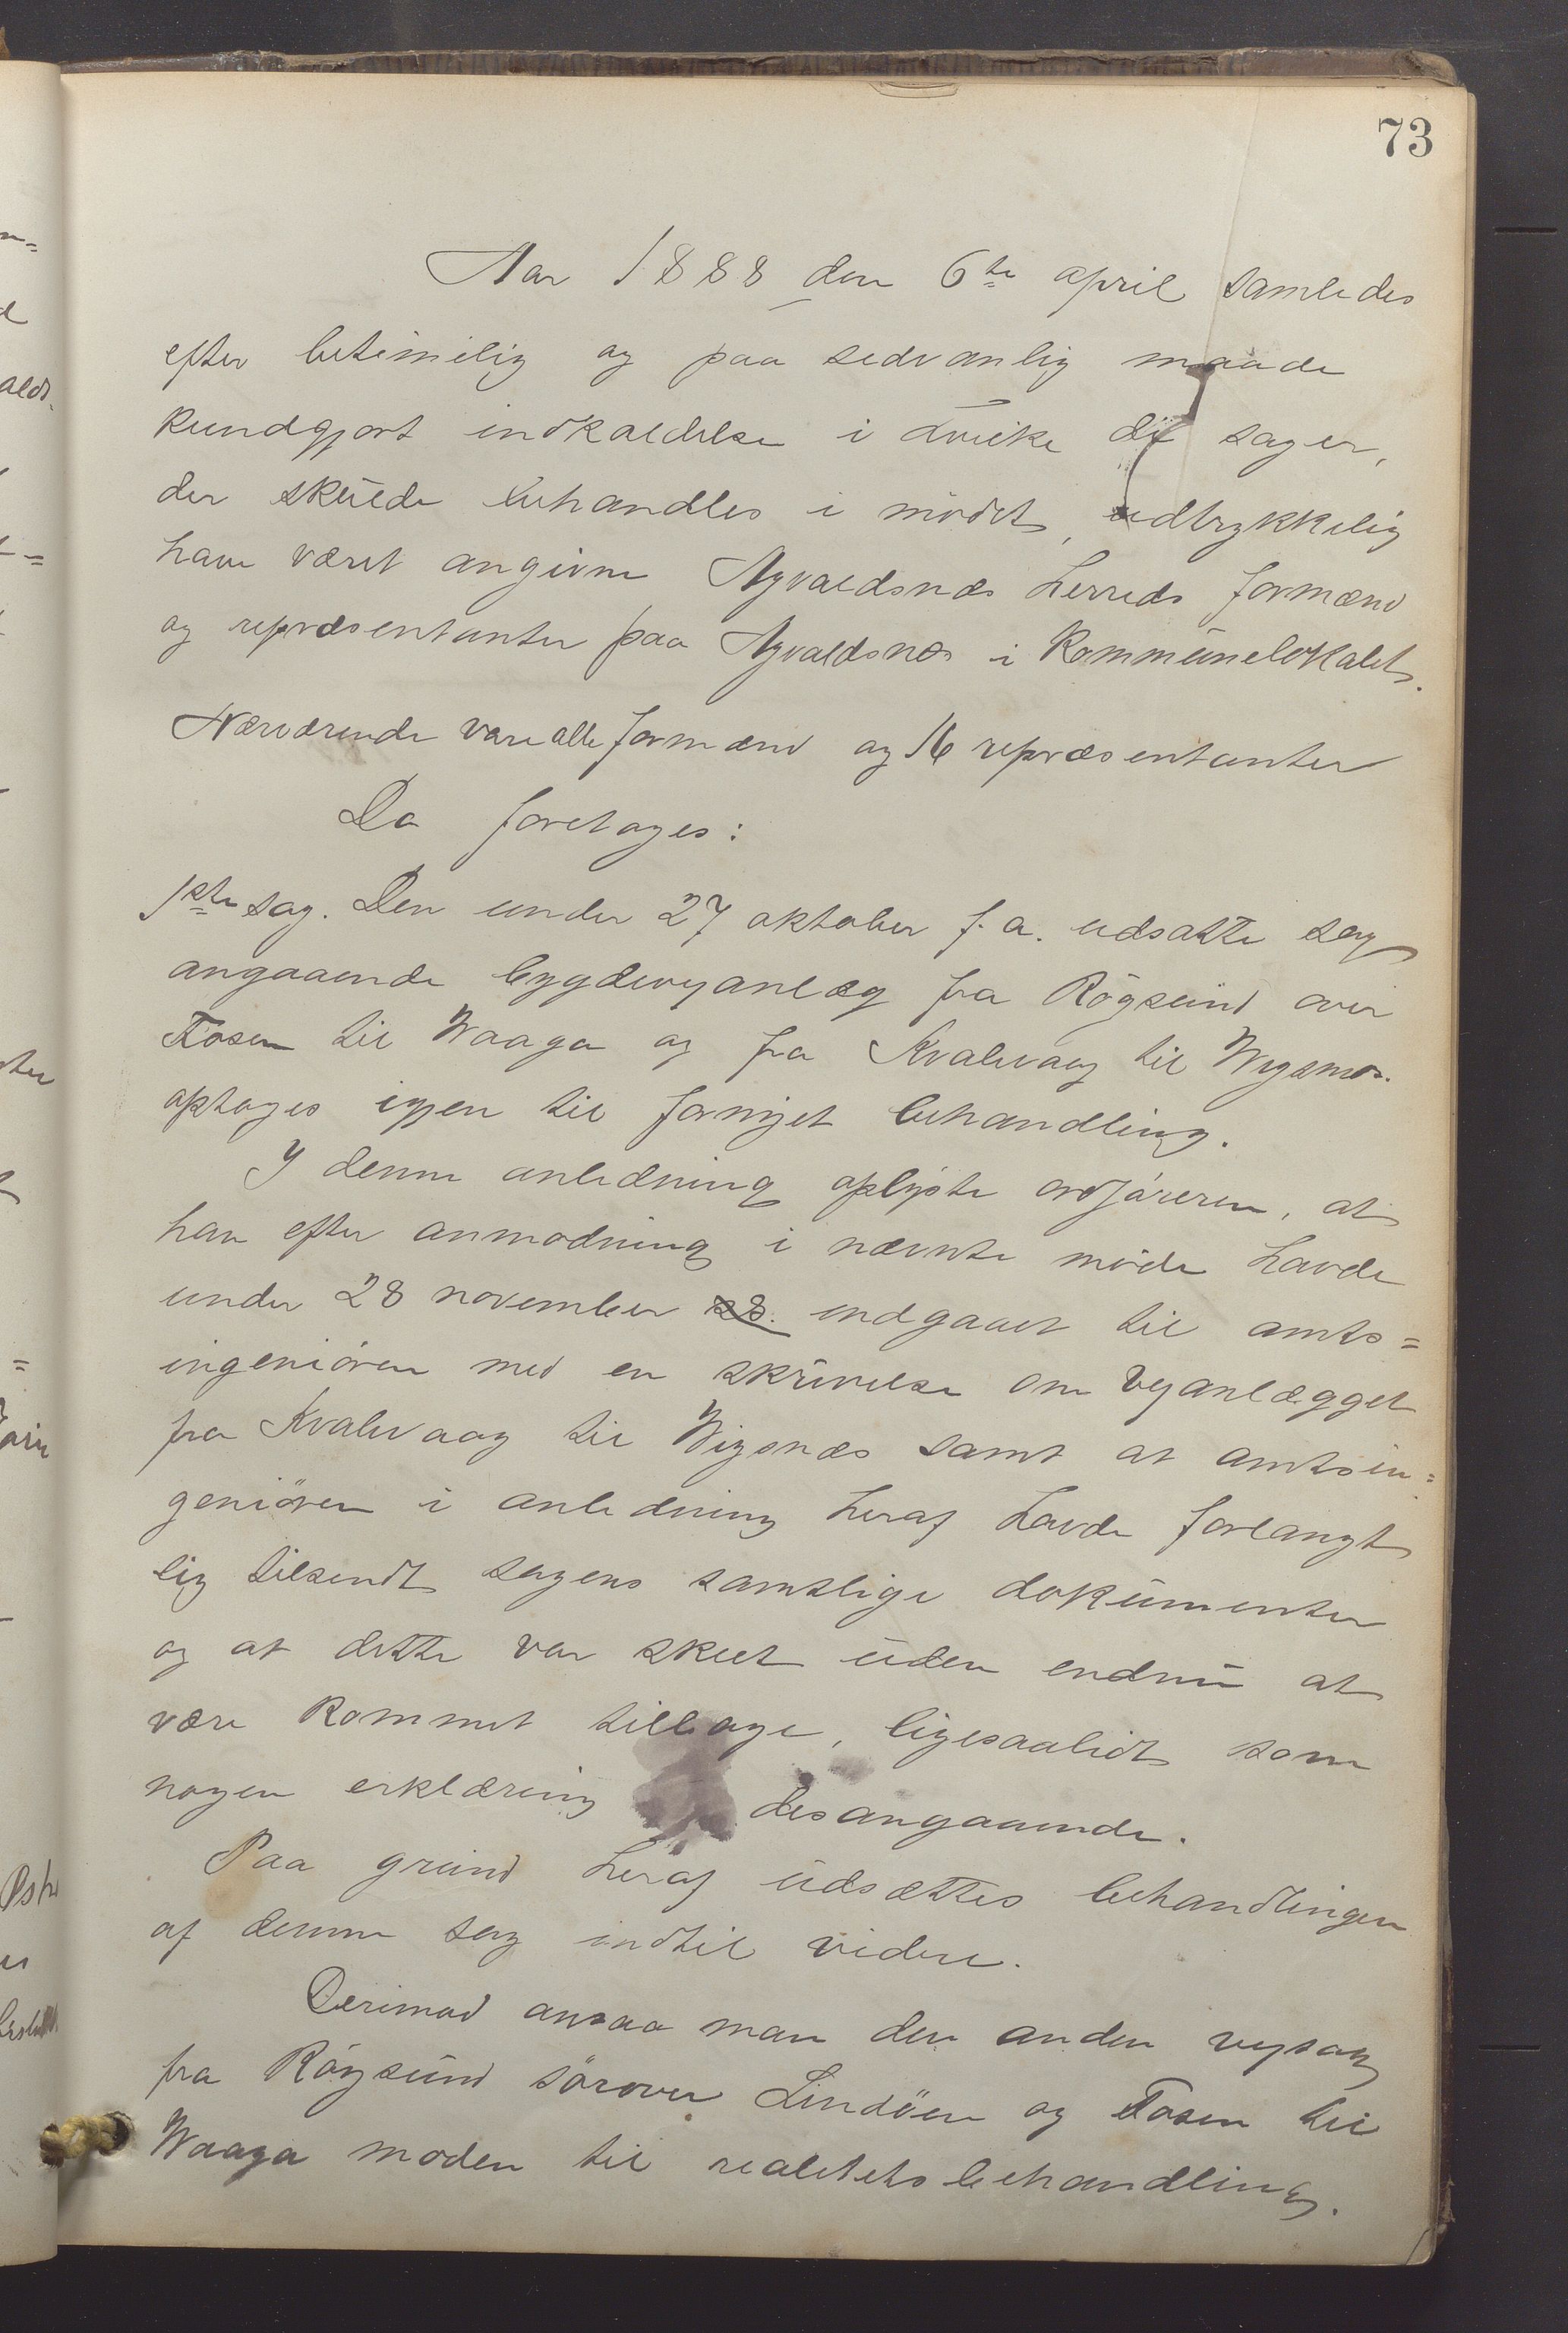 73
Aar 1888 den 6te april samledes
efter betimelig og paa sedvanlig maade
kundgjort indkaldelse i hvilke de sager,
der skulde behandles i mödet, udtrykkelig
have været angivne Agvaldsnæs herreds formænd
og repræsentanter paa Agvaldsnæs i Kommunelokalet.
Nærværende vare alle formænd og 16 repræsentanter
Da foretages:
1ste sag. Den under 27 oktober f. a. udsatte sag
angaaende bygdevejanlæg fra Rögsund over
Fosen til Waaga og fra Kvalevaag til Wigsnæs.
optages igjen til fornyet behandling.
I denne anledning oplyste ordföreren, at
han efter anmodning i nævnte möde havde
under 28 november indgaaet til amts=
ingeniören med en skrivelse om vejanlægget
fra Kvalevaag til Wigsnæs samt at amtsin=
geniören i anledning heraf havde forlangt
sig tilsendt sagens samtlige dokumenter
og at dette var skeet uden endnu at
være kommet tilbage, ligesaalidt som
nogen erklæring desangaaende.
Paa grund heraf udsættes behandlingen
af denne sag indtil videre.
Derimod ansaa man den anden vejsag
fra Rögsund sörover Lindöen og Fosen til
Waaga moden til realitetsbehandling.